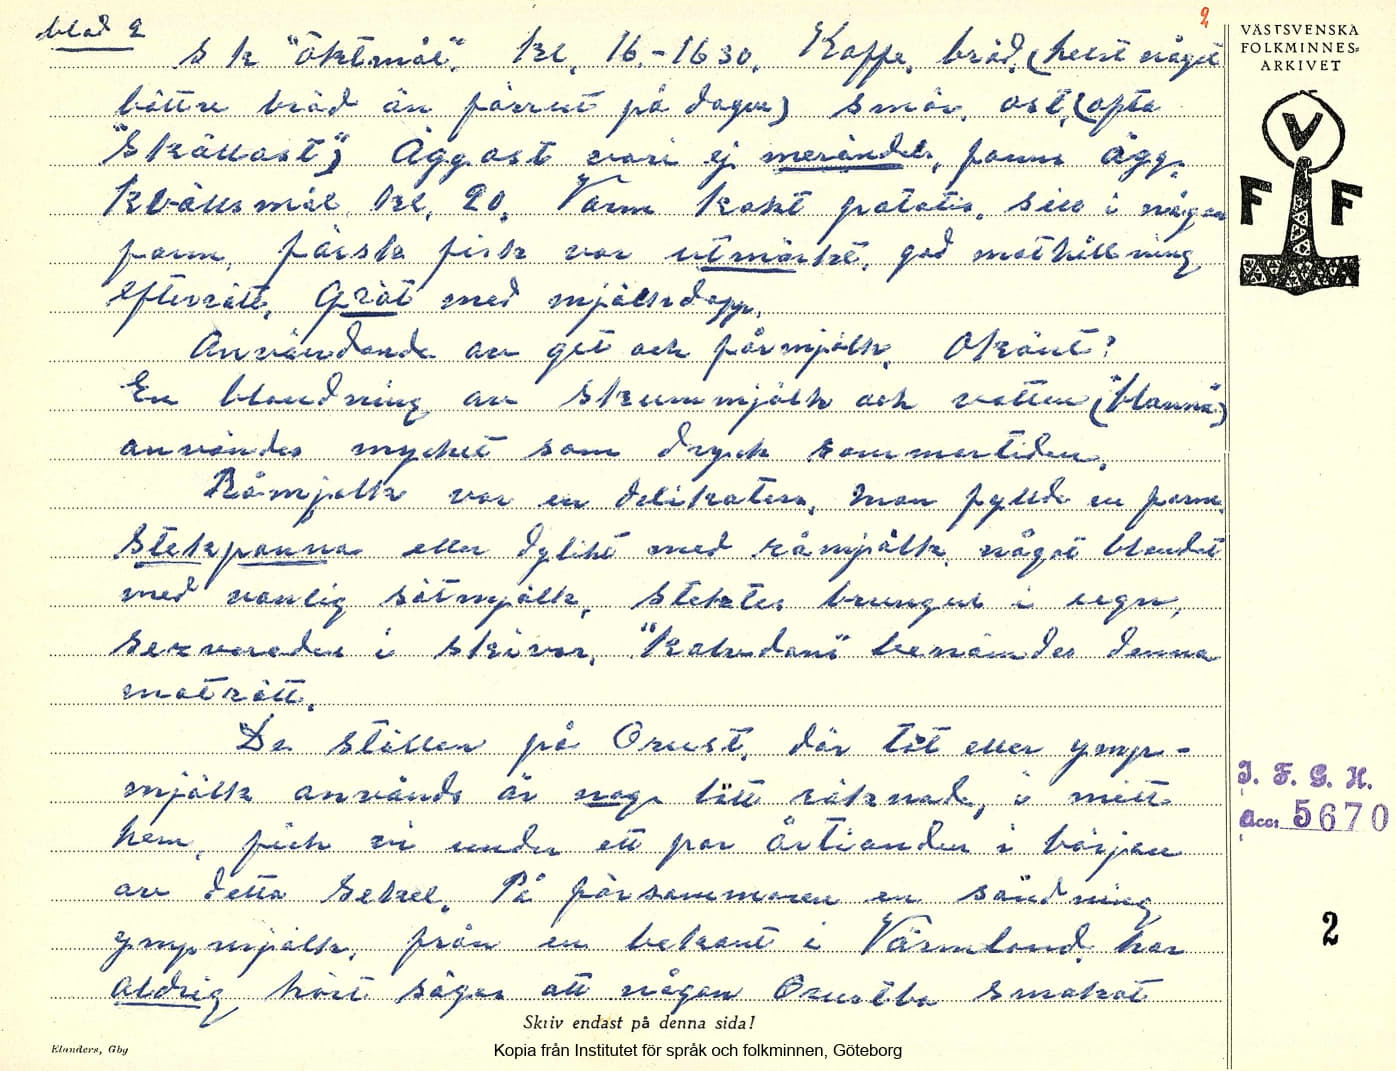 blad 2
2
s k "öktmål". kl. 16-1630. Kaffe, bröd, (helst något
bättre bröd än förrut på dagen) smör, ost, (ofta
"Skållost") Äggost vari ej merändels, fanns ägg.
Kvällsmål kl. 20. Varm kokt potatis, sill i någon
form, färsk fisk var utmärkt, god mathållning
efterrätt, Gröt med mjölkdopp.
Användande av get och fårmjölk. Okänt?
En blandning av skummjölk och vatten ("blanna")
användes mycket som dryck sommartiden.
Råmjölk var en delikatess, man fyllde en form,
stekpanna eller dylikt med råmjölk, något blandat
med vanlig sötmjölk, stektes brungul i ugn,
serverades i skivor, "Kalvdans" benämndes denna
maträtt.
De ställen på Orust, där tät eller ymp-
mjölk används är nog lätt räknade, i mitt
hem, fick vi under ett par årtionden i början
av detta sekel. På försommaren en sändning
ympmjölk, från en bekant i Värmland har
aldrig hört sägas att någon Orustbo smakat
Skriv endast på denna sida!
Elanders, Gbg
Kopia från Institutet för språk och folkminnen, Göteborg
VÄSTSVENSKA
FOLKMINNES=
ARKIVET
V
F F
I. F. G. H.
Acc: 5670
2